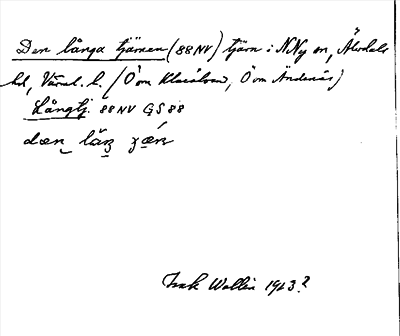 Den långa tjärnen (88 NV) tjärn i N.Ny sn, Älvdals
hd, Värml. l. (Ö om Klarälven, Ö om Ändenäs)
Långtj. 88 NV GS 88
Wallin 1913?